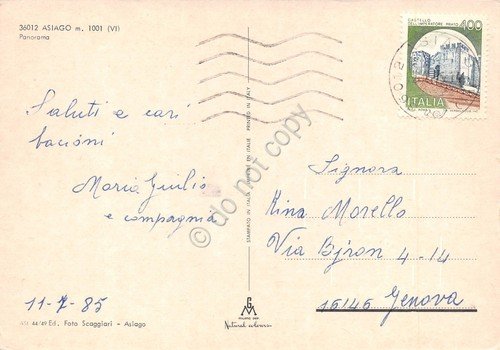 36012 ASIAGO m. 1001 (VI)
Panorama
CASTELLO
DELL'IMPERATORE PRATO
400
ITALIA
Saluti e cari
bacioni
Maria Giulio
e compagnia
11-7-85
Ed. Foto Scaggiari - Asiago
STAMPATO IN ITALIA
PRINTED IN ITALY
GM
Natural colorcro
© do not copy
Signora
Rina Morello
Via Bjron 4-14
16146 Genova